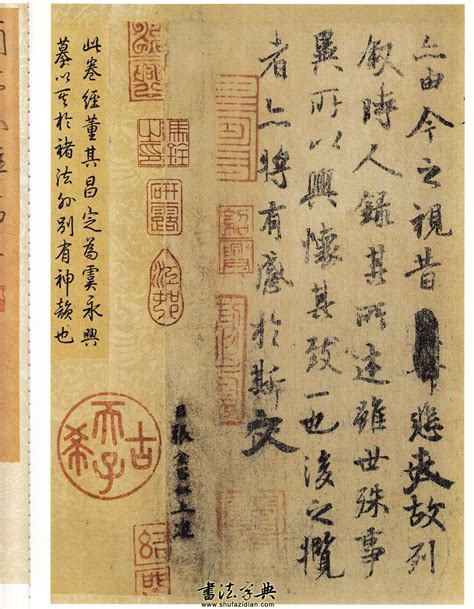 亦由今之視昔悲夫故列
叙時人錄其所述雖世殊事
異所以興懷其致一也後之攬
者亦將有感於斯文
臣張金界奴上進
紹興
古希天子
此卷經董其昌定為虞永興
摹以其於褚法外別有神韻也
書法字典
www.shufazidian.com